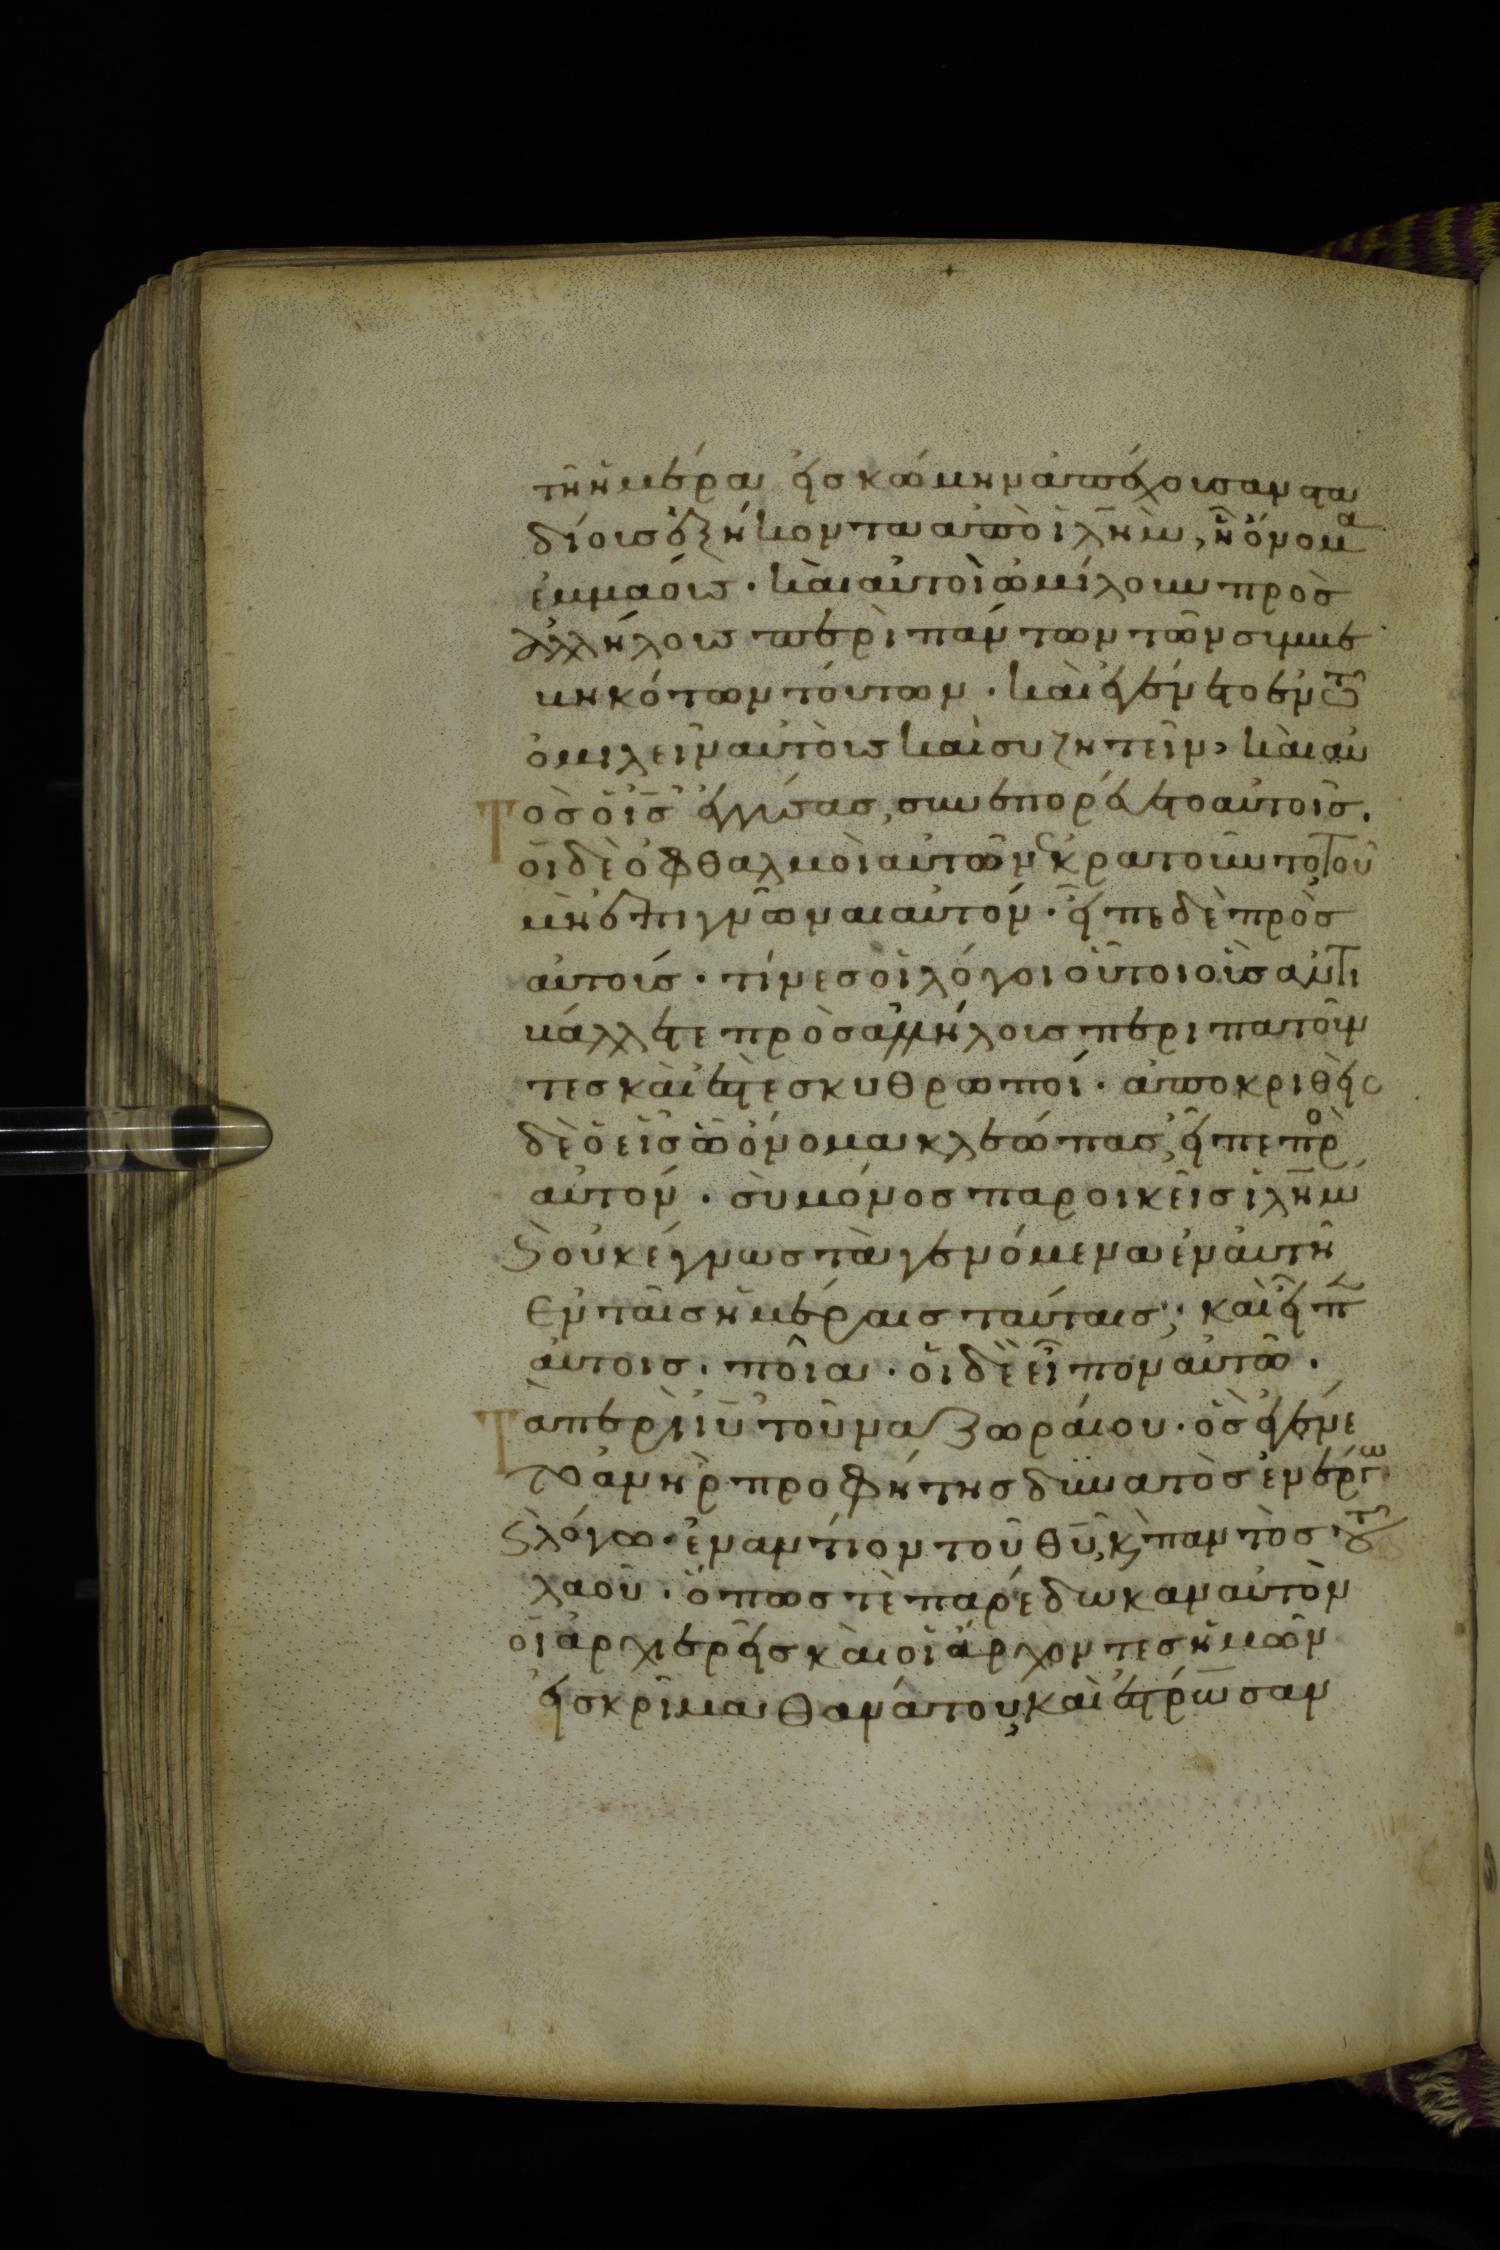 τῆ ἡμέρα εἰς κώμην ἀπέχουσαν στα
δίους ἑξήκοντα ἀπὸ ἰλῆμ, ἧ ὄνομα
ἐμμαούς · καὶ αὐτοὶ ὡμίλουν πρὸς
ἀλλήλους περὶ πάντων τῶν συμβε
βηκότων τούτων · καὶ ἐγένετο ἐν τῶ
ὁμιλεῖν αὐτοὺς καὶ συζητεῖν, καὶ αὐ
τὸς ὁ ις ἐγγίσας, συνεπορεύετο αὐτοῖς.
οἱ δὲ ὀφθαλμοὶ αὐτῶν ἐκρατοῦντο τοῦ
μὴ ἐπιγνῶναι αὐτόν · εἶπε δὲ πρὸς
αὐτούς · τίνες οἱ λόγοι οὗτοι οὓς ἀντι
βάλλετε πρὸς ἀλλήλους περιπατοῦν
τες καὶ ἐστὲ σκυθρωποί · ἀποκριθεὶς
δὲ ὁ εἷς ὧ ὄνομα κλεώπας, εἶπε πρὸ
αὐτόν · σὺ μόνος παροικεῖς ἰλῆμ
ϗ οὐκ ἔγνως τὰ γενόμενα ἐν αὐτῆ
ἐν ταῖς ἡμέραις ταύταις; καὶ εἶπ
αὐτοῖς · ποῖα · οἱ δὲ εἶπον αὐτῶ ·
Τὰ περὶ ιυ τοῦ ναζωραίου · ὃς ἐγένε
το ἀνὴρ προφήτης δυνατὸς ἐν ἔργω
ϗ λόγω · ἐναντίον τοῦ θυ, ϗ παντὸς τοῦ
λαοῦ · ὅπως τὲ παρέδωκαν αὐτὸν
οἱ ἀρχιερεῖς καὶ οἱ ἄρχοντες ἡμῶν
εἰς κρῖμα θανάτου, καὶ ἐσταύρωσαν